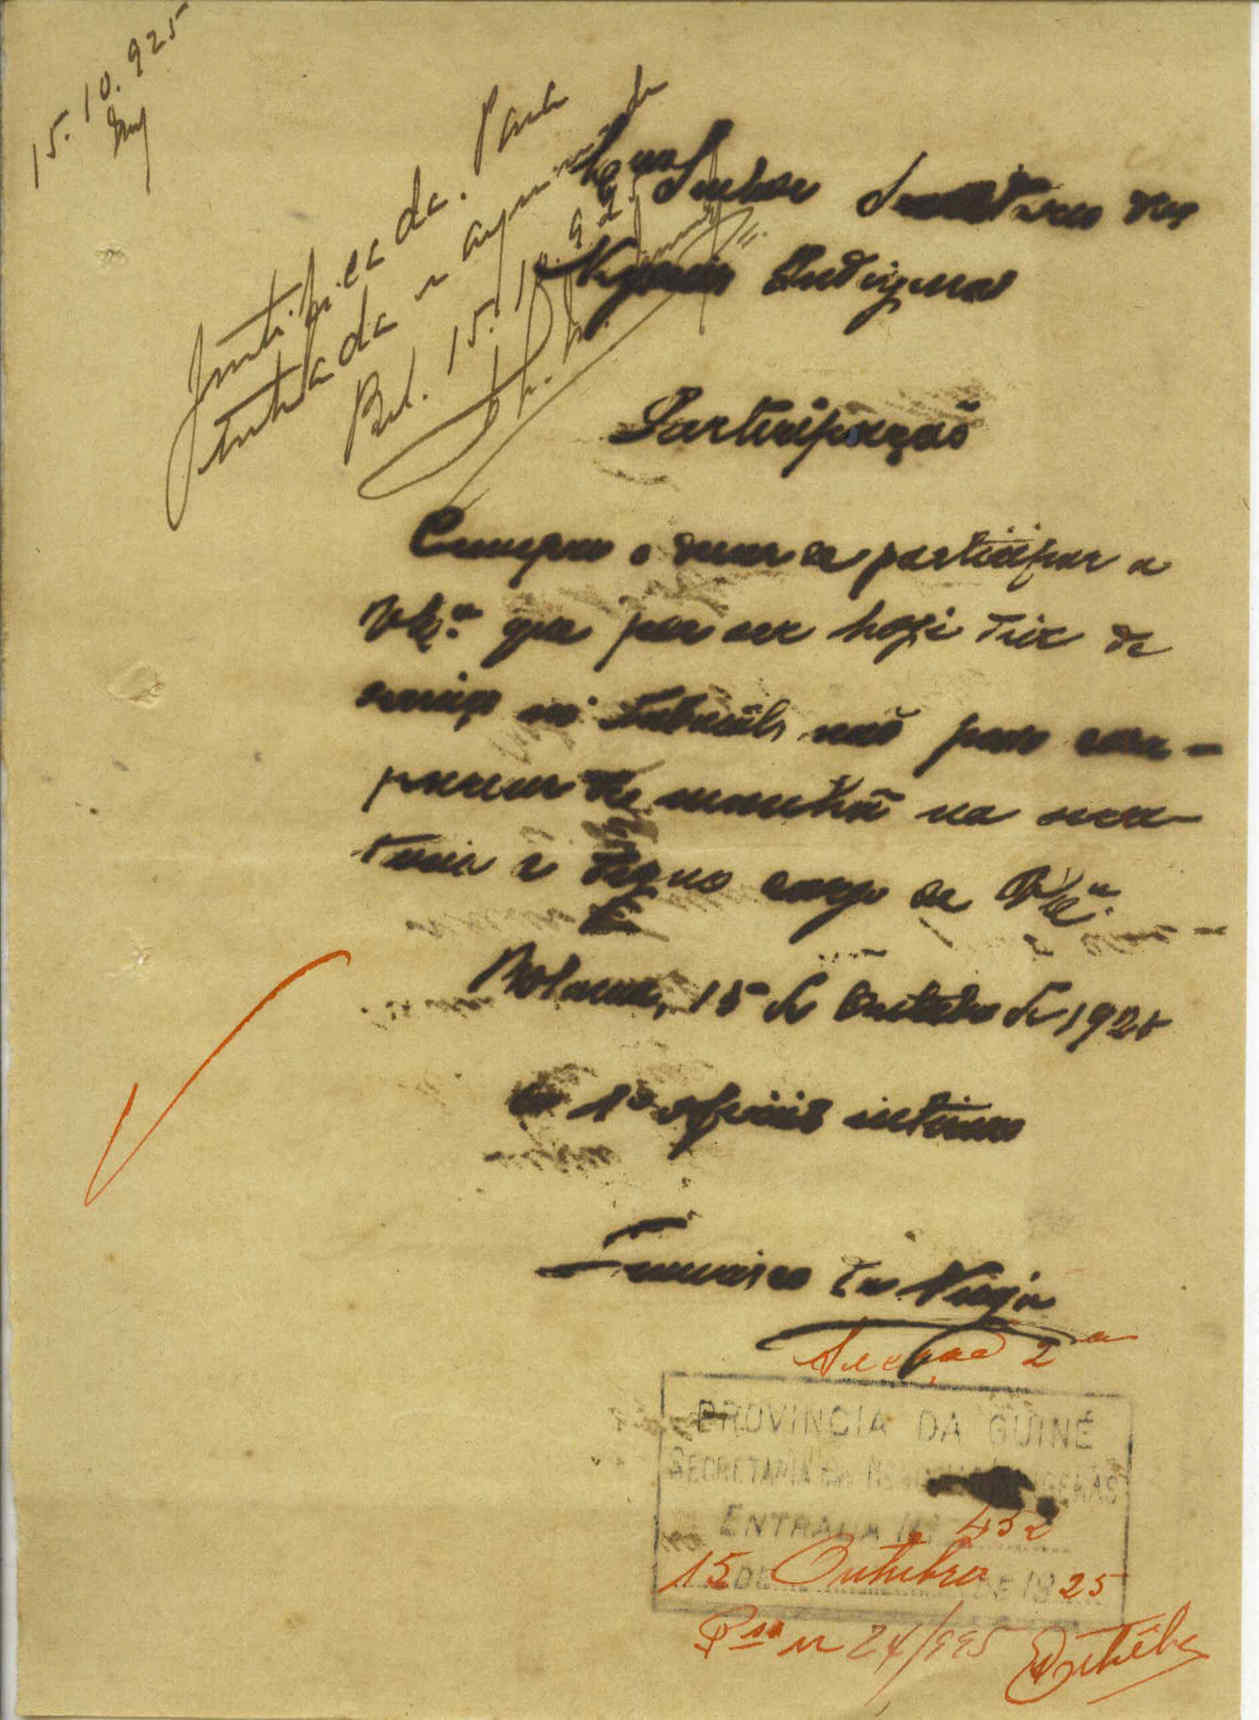 15.10.925
Justificada. Para
entrada e
Bol. 15.10.925
Exmo Senhor Secretario dos
Negocios Indigenas
Participação
Cumpro o dever de participar a
V. Exª que por ser hoje dia de
serviço no Tribunal, não posso com-
parecer de manhã na secre-
taria a digno cargo de V. Exª
Bolama, 15 de Outubro de 1925
O 1º oficial interino
Francisco da Veiga
Secção 2ª
PROVINCIA DA GUINÉ
SECRETARIA DOS NEGOCIOS INDIGENAS
ENTRADA Nº 452
15 DE Outubro DE 1925
P.so nº 24/995